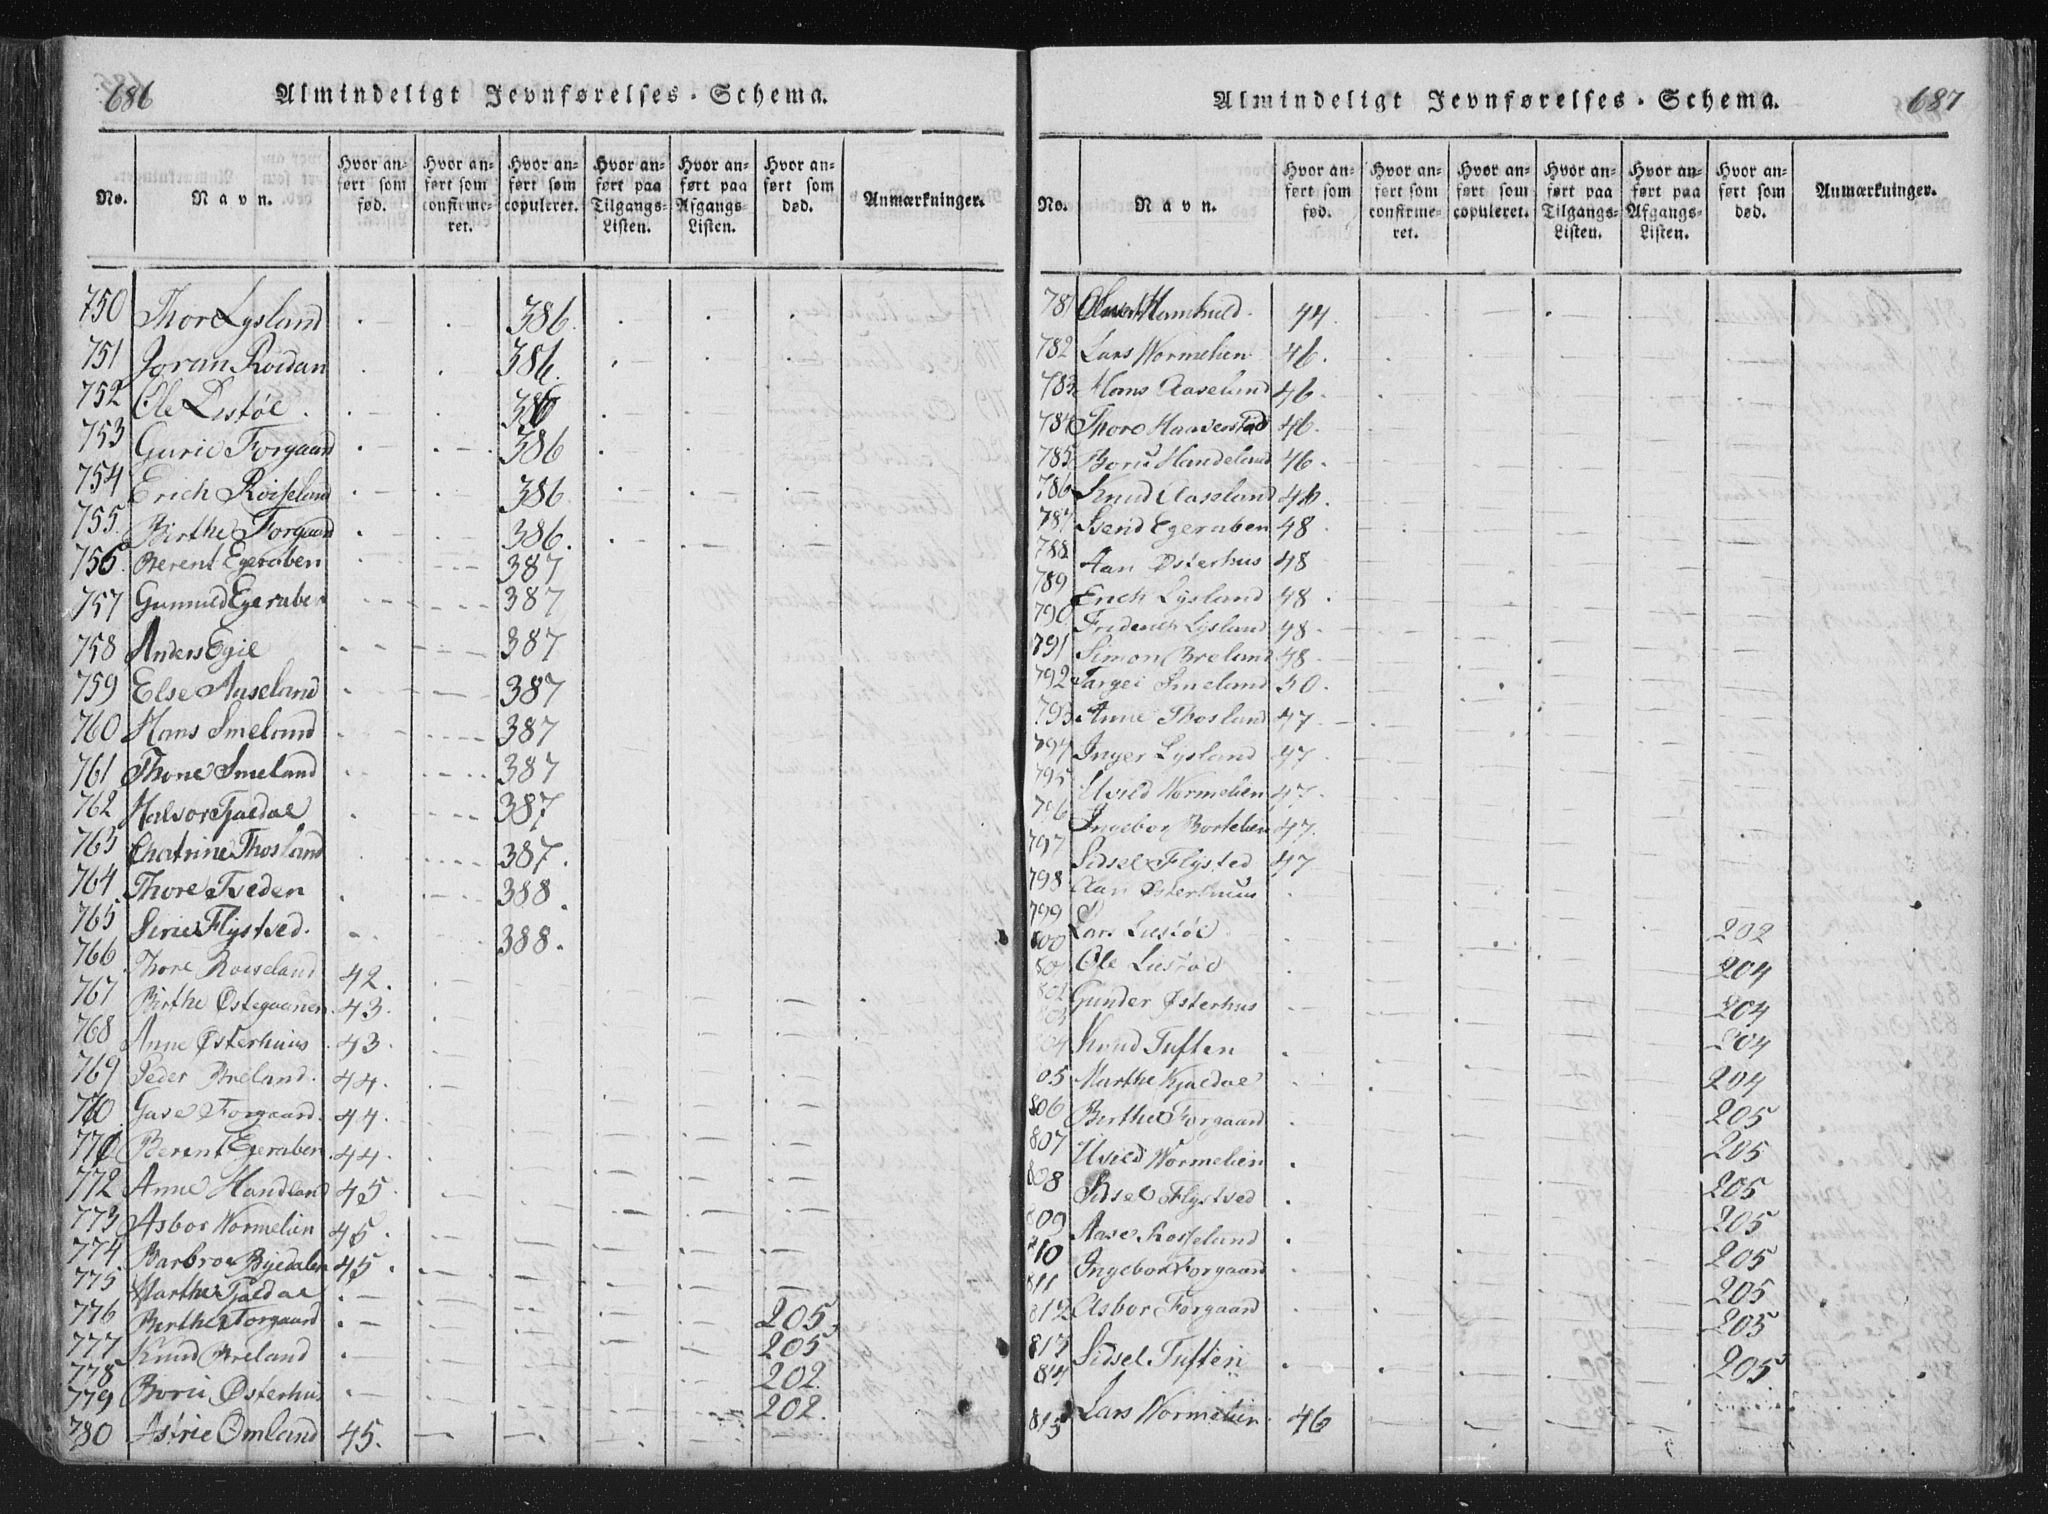 686
Almindeligt Jevnførelses-Schema.
No.
Navn.
Hvor anført som fød.
Hvor anført som confirmeret.
Hvor anført som copuleret.
Hvor anført paa Tilgangs-Listen.
Hvor anført paa Afgangs-Listen.
Hvor anført som død.
Anmærkninger.
750 Thor Lysland 386.
751 Joran Roidan 386.
752 Ole Listøl 386
753 Gurie Forgaard 386
754 Erich Roiseland 386
755. Birthe Forgaard 386.
756. Berent Egeraben 387
757 Gunnild Egeraben 387
758 Anders Egie 387
759 Else Aaseland 387
760 Hans Smeland 387
761 Thone Smeland 387
762 Halvor Tjaldal 387
763 Chatrine Thosland 387.
764 Thore Tveden 388.
765 Sirie Flystved. 388.
766 Thore Roiseland 42.
767 Birthe Østegaarden 43.
768 Anne Østerhuus 43.
769 Peder Breland. 44.
770 Forgaard. 44.
771 Berent Egeraben 44.
772 Anne Handland 45.
773 Asbor Wormelien 45.
774 Barbroe Byedalen 45.
775 Marthe Tjaldal
776 Berthe Forgaard 205.
777 Knud Breland 205
778 202.
779 Boru Østerhus 202.
780 Astrie Omland 45.
687
Almindeligt Jevnførelses-Schema.
No.
Navn.
Hvor anført som fød.
Hvor anført som confirmeret.
Hvor anført som copuleret.
Hvor anført paa Tilgangs-Listen.
Hvor anført paa Afgangs-Listen.
Hvor anført som død.
Anmærkninger.
781 44.
782 Lars Wormelien 46.
783 Hans Aaseland 46.
784 Thore Haaverstad 46.
785 Boru Handeland 46.
786 Knud Aaseland 46.
787 Svend Egeraben 48.
788 Aan Østerhus 48
789 Erich Lysland 48.
790 Friderich Lysland 48.
791 Simon Breland 48.
792 Targei Smeland 50.
793 Anne Thosland 47.
794 Inger Lysland 47.
795 Uvild Wormelien 47.
796 Ingebor 47.
797 Sidsel Flysted 47
798 Aan Østerhuus
799
800 Lars Listøl 202
801 Ole 204
802 Gunder Østerhus 204
803
804 Knud Tuften 204
805 Marthe Kjaldal 204
806 Berthe Forgaard 205
807 Uvild Wormelien 205
808 Sidsel Flystved 205
809 Aase Rosseland 205
810 Ingebor Forgaard 205
811 205
812 Asbor Forgaard 205
813 Sidsel Tuften 205
814
815 Lars Wormelien 46